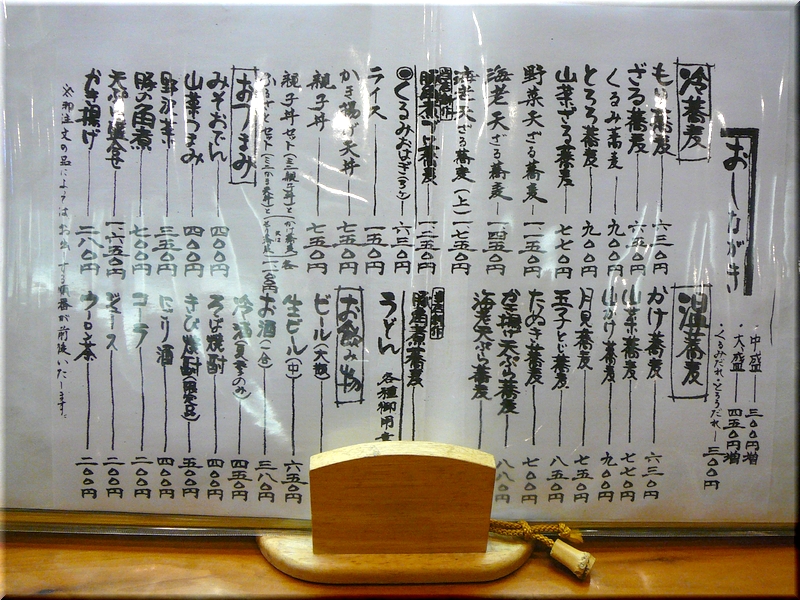 おしながき
・中盛 三〇〇円増
・大盛 四五〇円増
・くるみだれ・とろろだれ 三〇〇円
冷蕎麦
もり蕎麦 六三〇円
ざる蕎麦 六五〇円
くるみ蕎麦 九〇〇円
とろろ蕎麦 九〇〇円
山菜ざる蕎麦 七七〇円
野菜天ざる蕎麦 一、一五〇円
海老天ざる蕎麦 一、四五〇円
海老天ざる蕎麦(上) 一、七五〇円
蕎麦 一、二五〇円
◎くるみおはぎ 六三〇円
ライス 一五〇円
かき揚げ天丼 七五〇円
親子丼 七五〇円
親子丼セット
おつまみ
みそおでん 四〇〇円
山菜つまみ 四〇〇円
野沢菜 三五〇円
豚の角煮 七〇〇円
天ぷら盛合せ 一、六五〇円
かき揚げ 二八〇円
※御注文の品によってはお出しする順番が前後いたします。
温蕎麦
かけ蕎麦 六三〇円
山菜蕎麦 七七〇円
山かけ蕎麦 九〇〇円
月見蕎麦 七五〇円
玉子とじ蕎麦 八五〇円
たぬき蕎麦 七〇〇円
かき揚げ天ぷら蕎麦 八八〇円
海老天ぷら蕎麦
豚角煮蕎麦
うどん 各種御用意
お飲み物
ビール(大瓶)
生ビール(中) 六五〇円
お酒(一合) 三八〇円
冷酒(夏季のみ) 四五〇円
そば焼酎 四〇〇円
きび焼酎(限定品) 五〇〇円
にごり酒 四〇〇円
コーラ 二〇〇円
ジュース 二〇〇円
ウーロン茶 二〇〇円